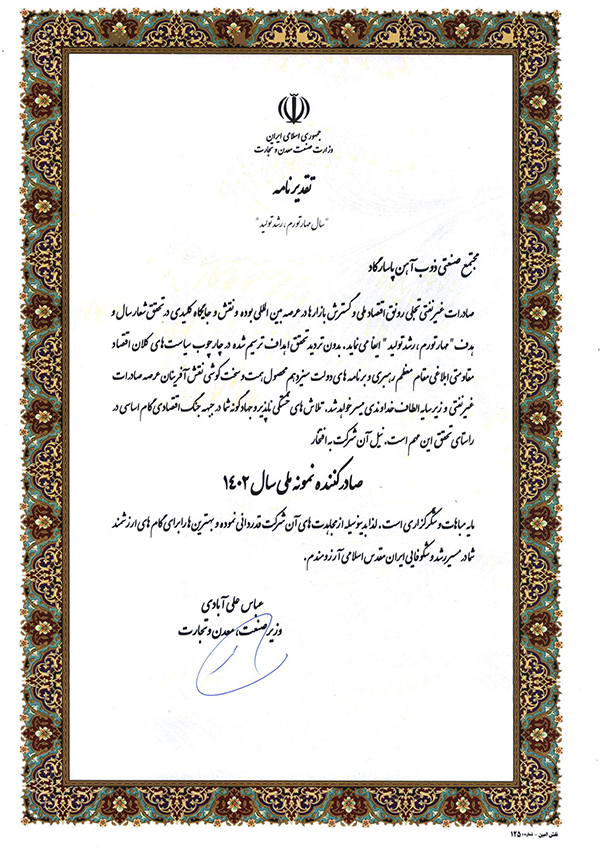 جمهوری اسلامی ایران
وزارت صنعت معدن و تجارت
تقدیرنامه
"سال مهار تورم، رشد تولید"
مجتمع صنعتی ذوب آهن پاسارگاد
صادرات غیرنفتی تجلی رونق اقتصاد ملی و گسترش بازارها در عرصه بین المللی بوده و نقش و جایگاه کلیدی در تحقق شعار سال و
هدف "مهار تورم، رشد تولید" ایفا می نماید. بدون تردید تحقق اهداف ترسیم شده در چارچوب سیاست های کلان اقتصاد
مقاومتی ابلاغی مقام معظم رهبری و برنامه های دولت سیزدهم محصول همت و سخت کوشی نقش آفرینان عرصه صادرات
غیرنفتی و زیر سایه الطاف خداوندی میسر خواهد شد. تلاش های خستگی ناپذیر و جهادگونه شما در جبهه جنگ اقتصادی گام اساسی در
راستای تحقق این مهم است. نیل آن شرکت به افتخار
صادرکننده نمونه ملی سال ۱۴۰۲
مایه مباهات و شکرگزاری است. لذا بدینوسیله از مجاهدت های آن شرکت قدردانی نموده و بهترین ها را برای گام های ارزشمند
شما در مسیر رشد و شکوفایی ایران مقدس اسلامی آرزومندم.
عباس علی آبادی
وزیر صنعت، معدن و تجارت
نقش امین - شماره: ۱۲۵